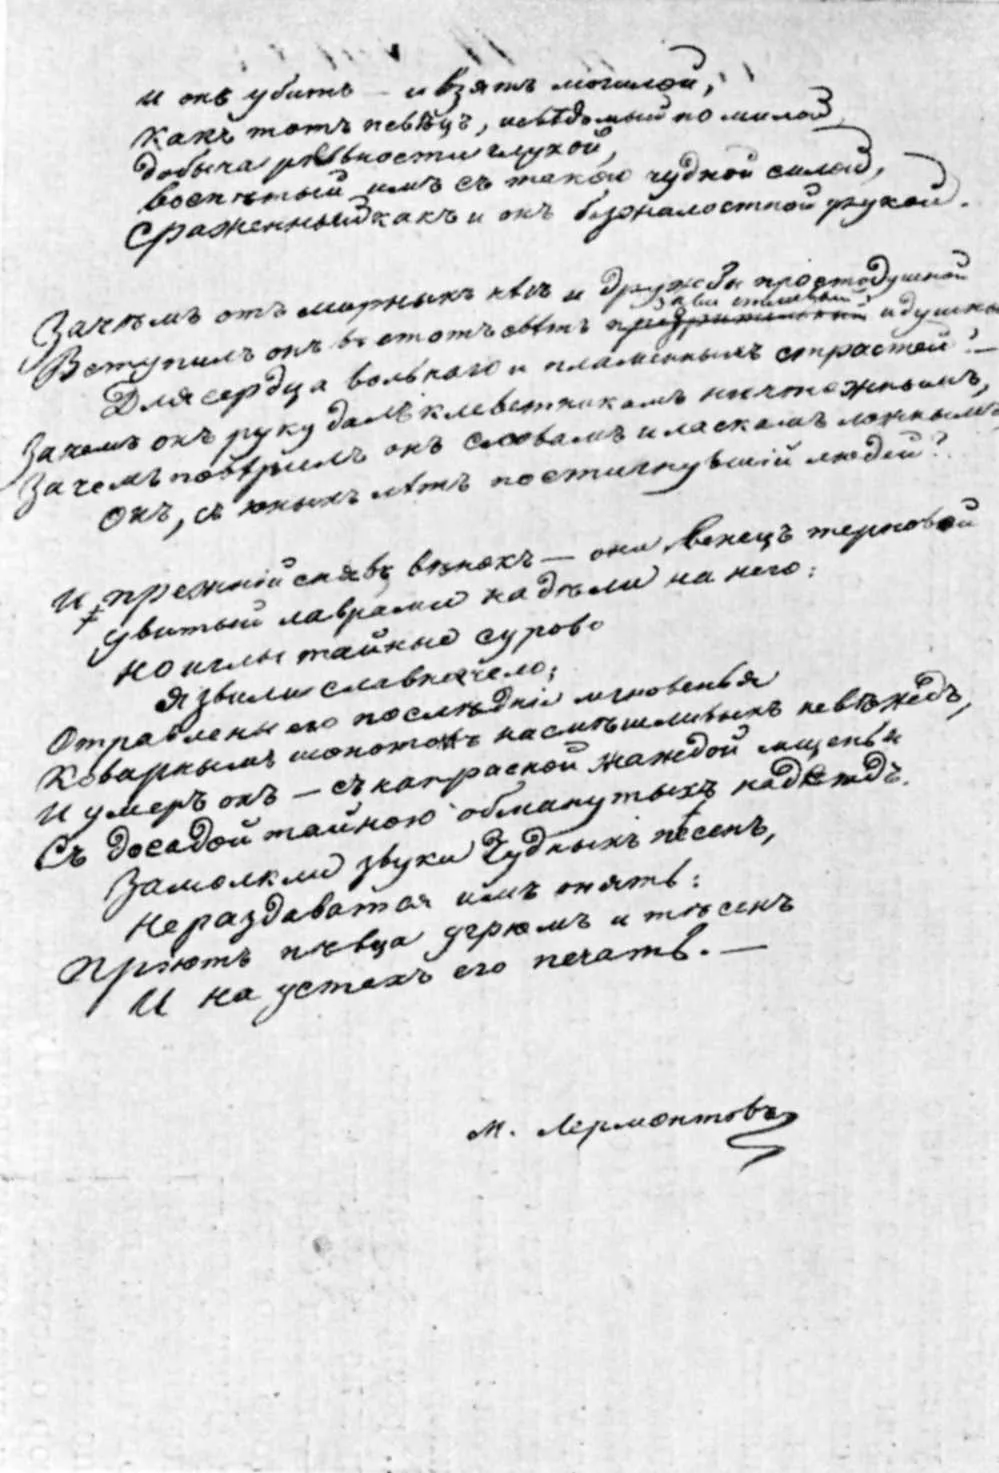 И онъ убитъ — и взятъ могилой,
Какъ тотъ пѣвецъ, невѣдомый но милой,
Добыча ревности глухой,
Воспѣтый имъ съ такою чудной силой,
Сраженный какъ и онъ безжалостной рукой.
Зачѣмъ отъ мирныхъ нѣгъ и дружбы простодушной
завистливый
Вступилъ онъ въ этотъ свѣтъ и душный
Для сердца вольнаго и пламенныхъ страстей? —
Зачемъ онъ руку далъ клеветникамъ ничтожнымъ,
Зачемъ повѣрилъ онъ словамъ и ласкамъ ложнымъ
Онъ, съ юныхъ лѣтъ постигнувшій людей?
И прежній снявъ вѣнокъ — они венецъ терновой
Увитый лаврами надѣли на него:
Но иглы тайные сурово
Язвили славное чело;
Отравлены его послѣдніе мгновенья
Коварнымъ шопотомъ насмѣшливыхъ невѣждъ,
И умеръ онъ — съ напрасной жаждой мщенья
Съ досадой тайною обманутыхъ надеждъ.
Замолкли звуки чудныхъ песенъ,
Не раздаватся имъ опять:
Пріютъ пѣвца угрюмъ и тѣсенъ
И на устахъ его печать. —
М. Лермонтовъ